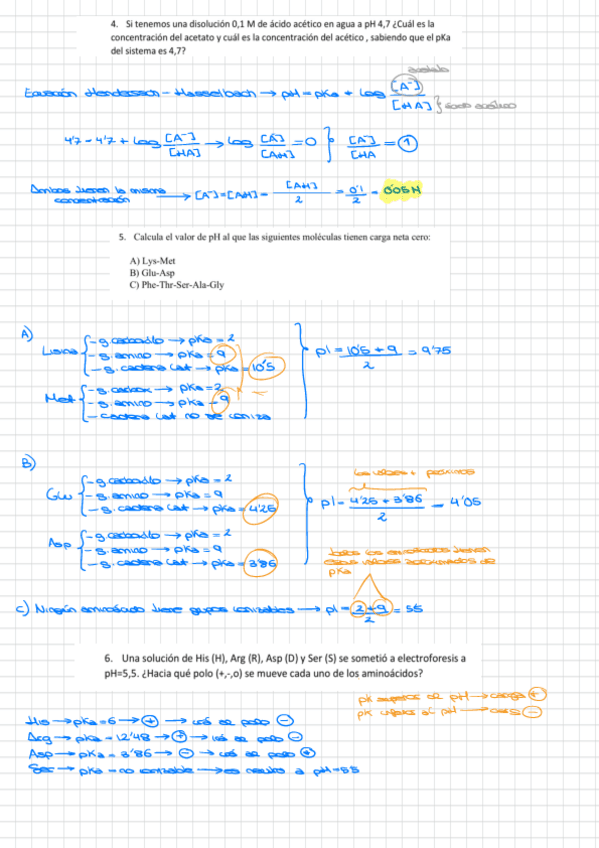 4. Si tenemos una disolución 0,1 M de ácido acético en agua a pH 4,7 ¿Cuál es la
concentración del acetato y cuál es la concentración del acético , sabiendo que el pKa
del sistema es 4,7?
acetato
Ecuación Henderson - Hasselbach → pH = pKa + log [A⁻] / [HA] } ácido acético
4'7 = 4'7 + log [A⁻] / [HA] → log [A⁻] / [AH] = 0 } [A⁻] / [HA = 1
Ambos tienen la misma concentración → [A⁻] = [AH] = [AH] / 2 = 0'1 / 2 = 0'05 M
5. Calcula el valor de pH al que las siguientes moléculas tienen carga neta cero:
A) Lys-Met
B) Glu-Asp
C) Phe-Thr-Ser-Ala-Gly
A)
Lisina { - g. carboxilo → pKa = 2
- g. amino → pKa = 9
- g. cadena lat → pKa = 10'5
pI = 10'5 + 9 / 2 = 9'75
Met { - g. carbox → pKa = 2
- g. amino → pKa = 9
- cadena lat no se ioniza
B)
los valores + próximos
Glu { - g. carboxilo → pKa = 2
- g. amino → pKa = 9
- g. cadena lat → pKa = 4'25
pI = 4'25 + 3'86 / 2 = 4'05
Asp { - g. carboxilo → pKa = 2
- g. amino → pKa = 9
- g. cadena lat → pKa = 3'86
todos los aminoácidos tienen
esos valores aproximados de
pKa
C) Ningún aminoácido tiene grupos ionizables → pI = 2 + 9 / 2 = 5'5
6. Una solución de His (H), Arg (R), Asp (D) y Ser (S) se sometió a electroforesis a
pH=5,5. ¿Hacia qué polo (+,-,o) se mueve cada uno de los aminoácidos?
pK superior al pH → carga +
pK al pH → carga -
His → pKa = 6 → + → al polo -
Arg → pKa = 12'48 → + → al polo -
Asp → pKa = 3'86 → - → al polo +
Ser → pKa = no ionizable → es neutro a pH = 5'5